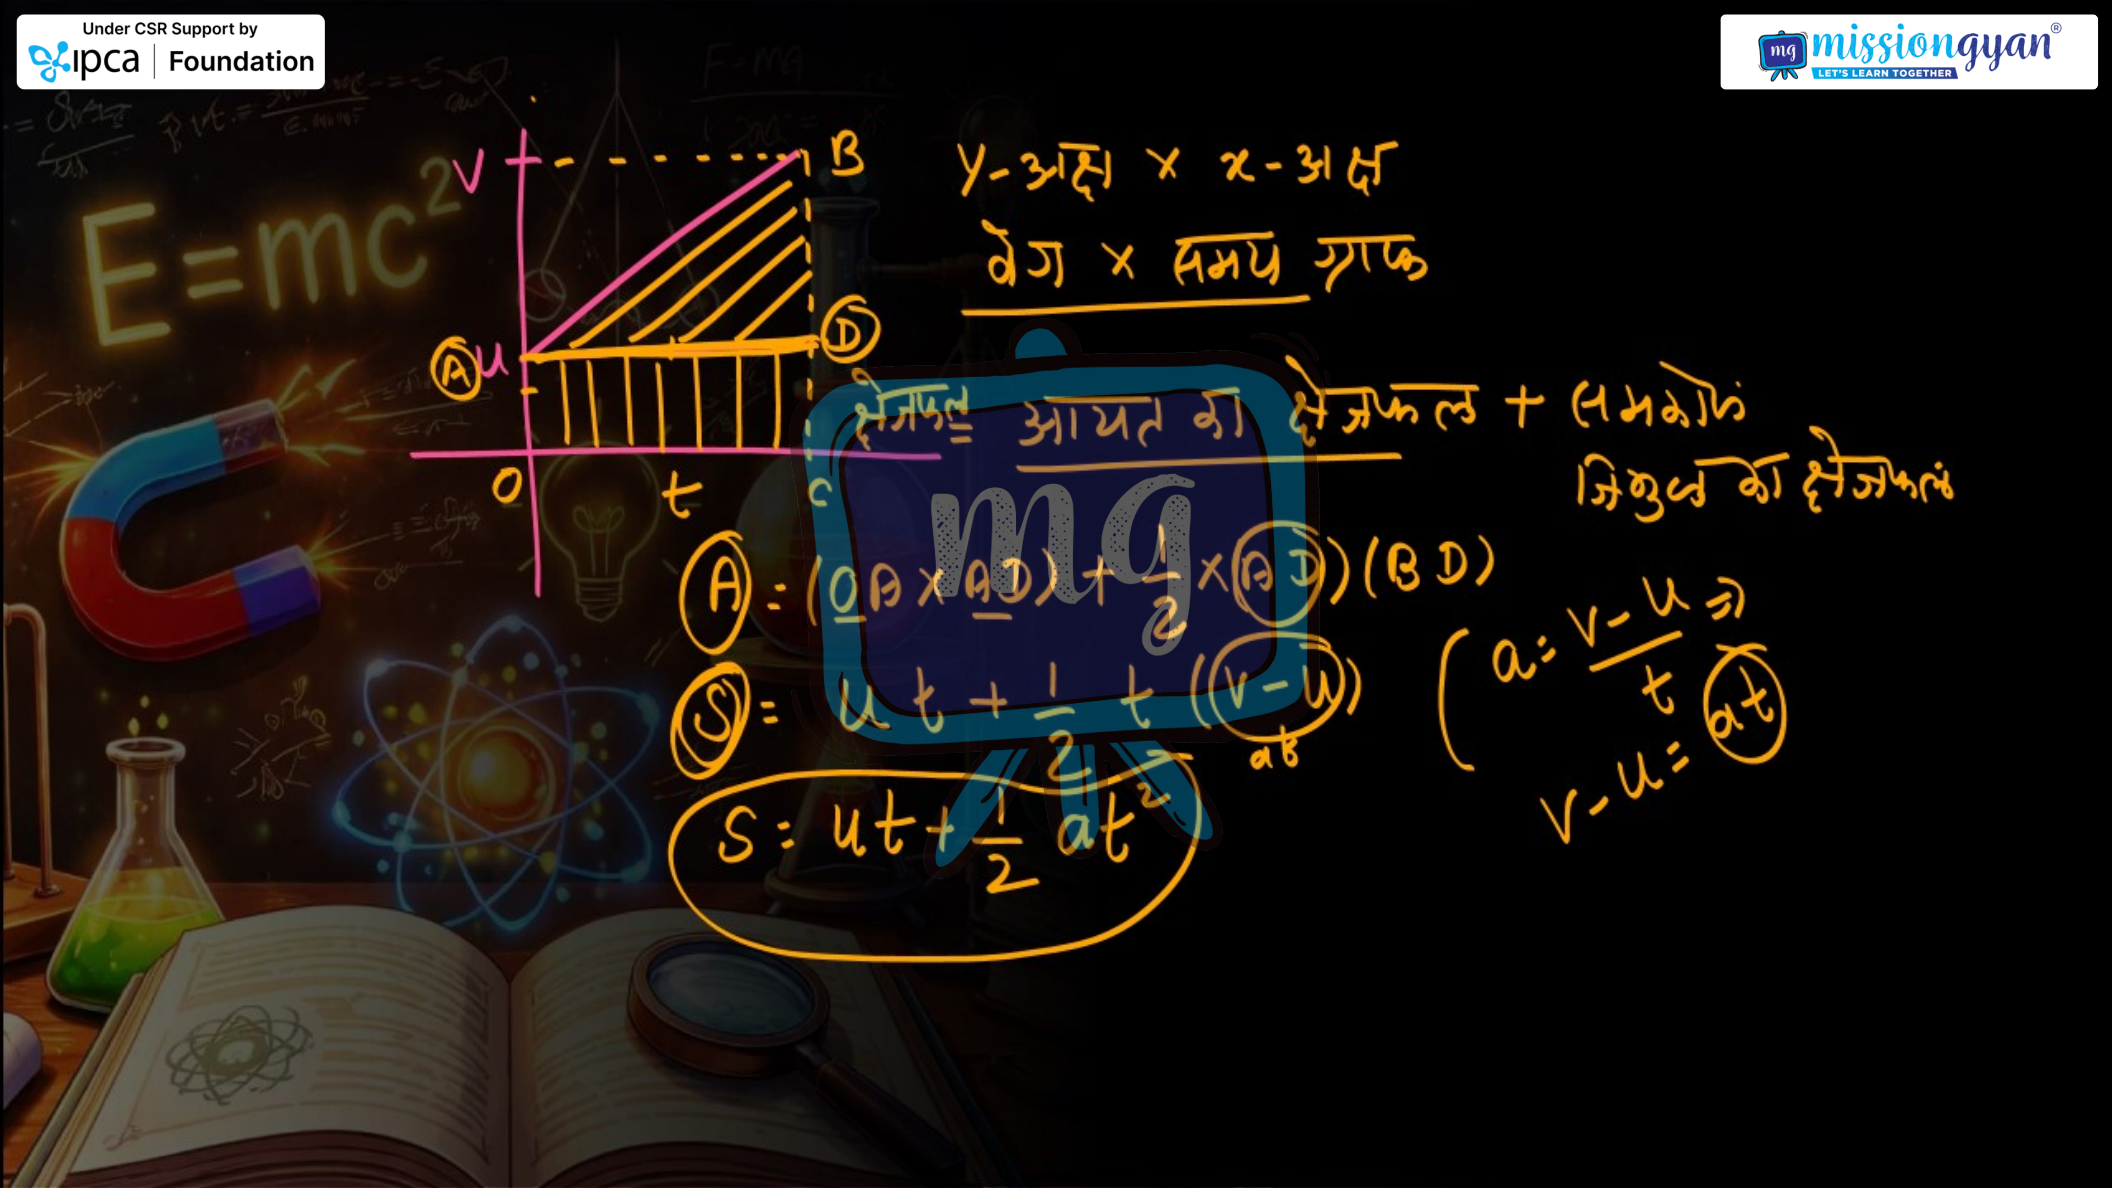 Under CSR Support by
ipca | Foundation
mg missiongyan®
LET'S LEARN TOGETHER
E=mc²
V
B
A u
D
O t C
y-अक्ष × x-अक्ष
वेग × समय ग्राफ
क्षेत्रफल = आयत का क्षेत्रफल + समकोण
त्रिभुज का क्षेत्रफल
A = (OA × AD) + 1/2 × (AD) (BD)
S = u t + 1/2 t (v-u)
at
(a = v-u/t ⇒
v-u = at
S = ut + 1/2 at²
mg